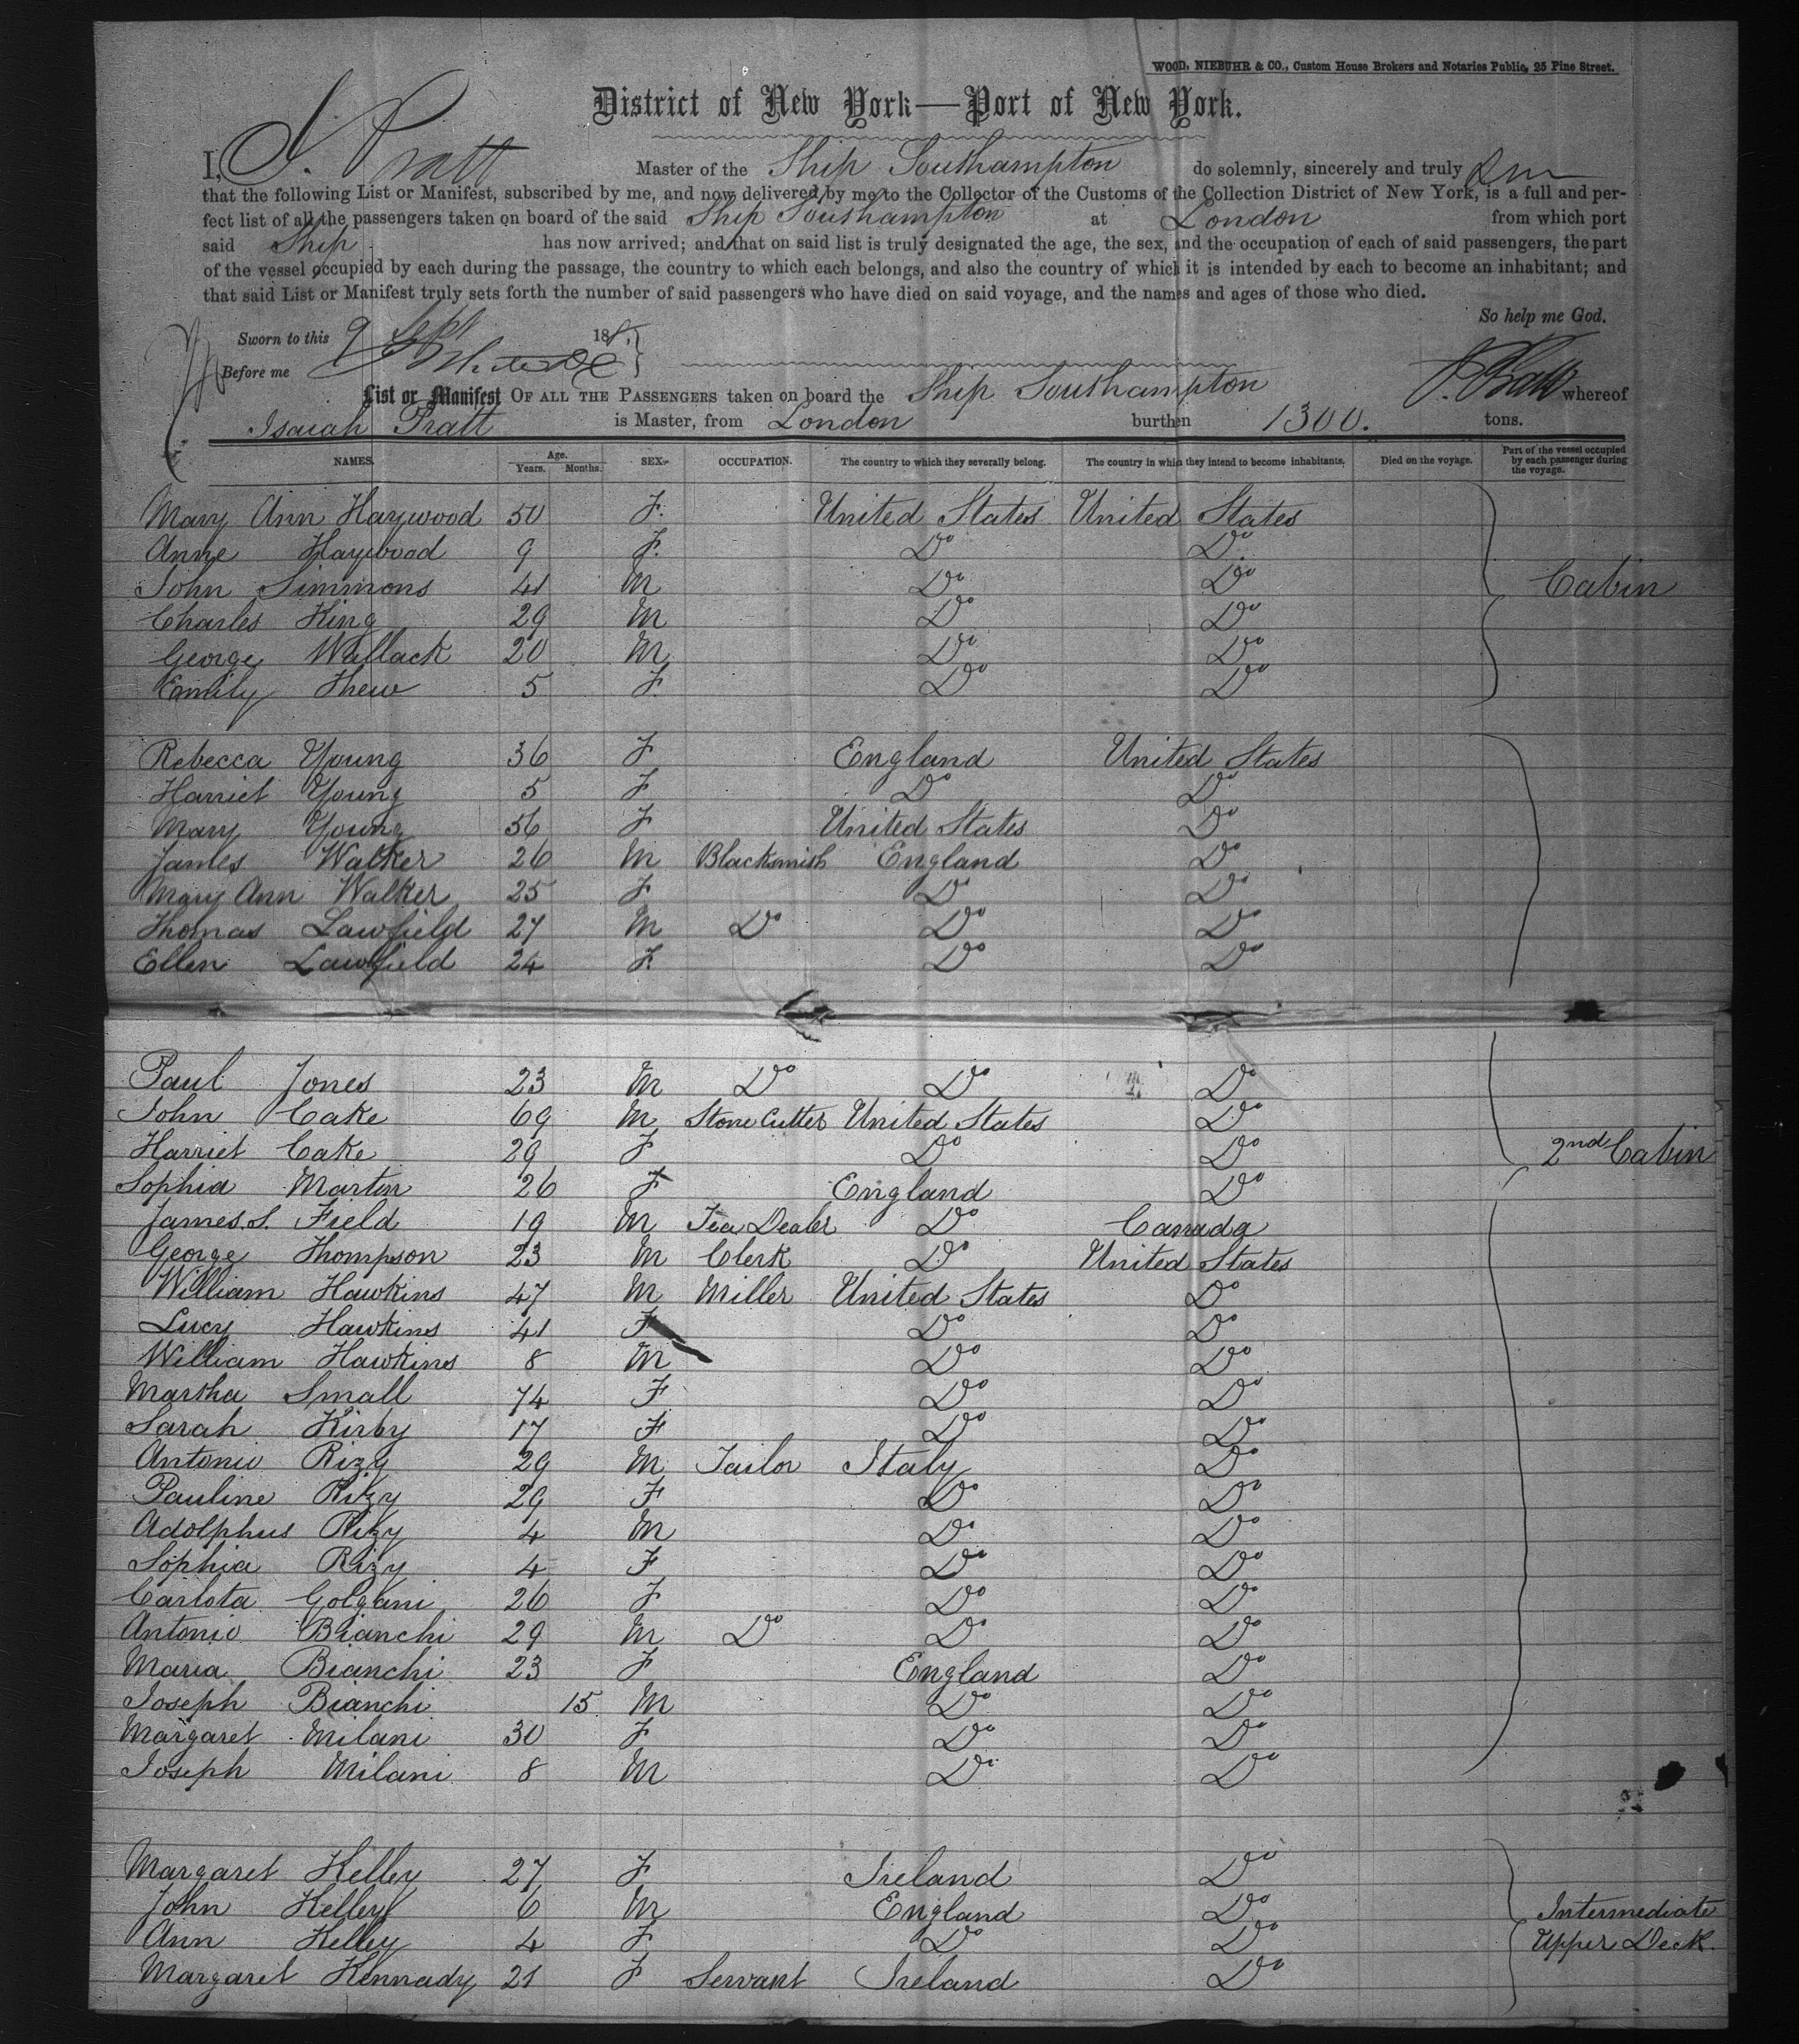 WOOD, NIEBUHR & CO., Custom House Brokers and Notaries Public, 25 Pine Street.
District of New York—Port of New York.
I, I. Pratt Master of the Ship Southampton do solemnly, sincerely and truly
that the following List or Manifest, subscribed by me, and now delivered by me to the Collector of the Customs of the Collection District of New York, is a full and per-
fect list of all the passengers taken on board of the said Ship Southampton at London from which port
said Ship has now arrived; and that on said list is truly designated the age, the sex, and the occupation of each of said passengers, the part
of the vessel occupied by each during the passage, the country to which each belongs, and also the country of which it is intended by each to become an inhabitant; and
that said List or Manifest truly sets forth the number of said passengers who have died on said voyage, and the names and ages of those who died.
So help me God.
Sworn to this 9 Sept 18
Before me
I. Pratt
List or Manifest OF ALL THE PASSENGERS taken on board the Ship Southampton whereof
Isaiah Pratt is Master, from London burthen 1300. tons.
NAMES. Age. Years. Months. SEX. OCCUPATION. The country to which they severally belong. The country in which they intend to become inhabitants. Died on the voyage. Part of the vessel occupied by each passenger during the voyage.
Mary Ann Haywood 50 F. United States United States
Anne Haywood 9 F. Do Do
John Simmons 41 M Do Do Cabin
Charles King 29 M Do Do
George Wallack 20 M Do Do
Emily Thew 5 F. Do Do
Rebecca Young 36 F England United States
Harriet Young 5 F Do Do
Mary Young 56 F United States Do
James Walker 26 M Blacksmith England Do
Mary Ann Walker 25 F Do Do
Thomas Lawfield 27 M Do Do Do
Ellen Lawfield 24 F. Do Do
Paul Jones 23 M Do Do Do
John Cake 69 M Stone Cutter United States Do
Harriet Cake 29 F Do Do 2nd Cabin
Sophia Martin 26 F England Do
James S. Field 19 M Tea Dealer Do Canada
George Thompson 23 M Clerk Do United States
William Hawkins 47 M Miller United States Do
Lucy Hawkins 41 F Do Do
William Hawkins 8 M Do Do
Martha Small 74 F Do Do
Sarah Kirby 17 F Do Do
Antonio Rizy 29 M Tailor Italy Do
Pauline Rizy 29 F Do Do
Adolphus Rizy 4 M Do Do
Sophia Rizy 4 F Do Do
Carlota Golgani 26 F Do Do
Antonio Bianchi 29 M Do Do Do
Maria Bianchi 23 F England Do
Joseph Bianchi 15 M Do Do
Margaret Milani 30 F Do Do
Joseph Milani 8 M Do Do
Margaret Kelley 27 F Ireland Do
John Kelley 6 M England Do Intermediate
Ann Kelley 4 F Do Do Upper Deck.
Margaret Kennady 21 F Servant Ireland Do